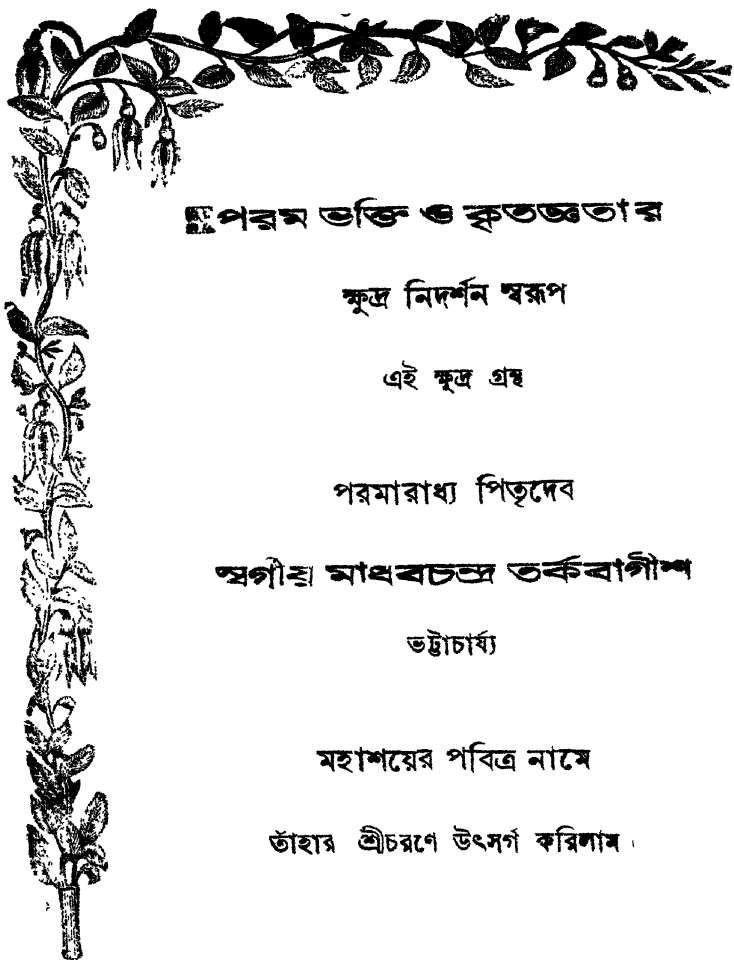 পরম ভক্তি ও কৃতজ্ঞতার
ক্ষুদ্র নিদর্শন স্বরূপ
এই ক্ষুদ্র গ্রন্থ
পরমারাধ্য পিতৃদেব
স্বর্গীয় মাধবচন্দ্র তর্কবাগীশ
ভট্টাচার্য্য
মহাশয়ের পবিত্র নামে
তাঁহার শ্রীচরণে উৎসর্গ করিলাম।